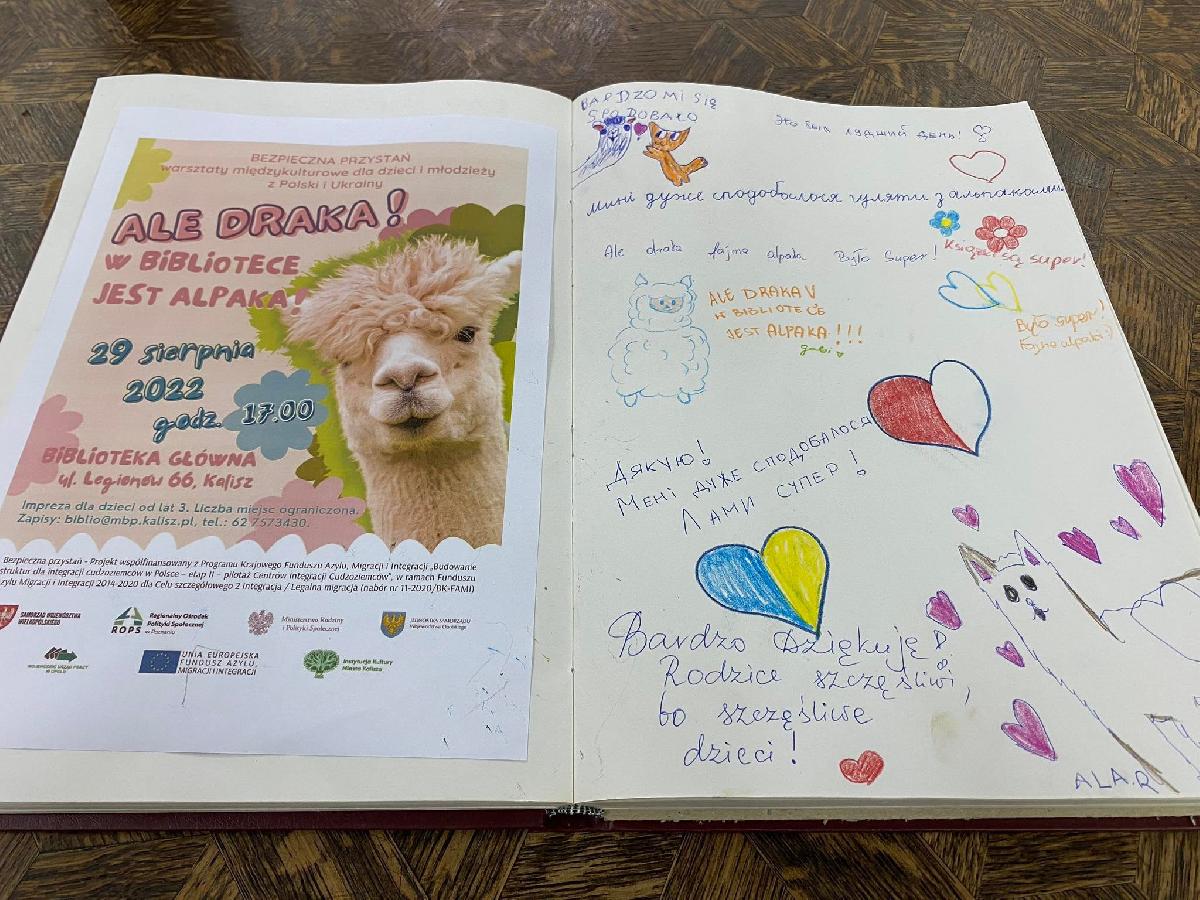 BEZPIECZNA PRZYSTAŃ
warsztaty międzykulturowe dla dzieci i młodzieży
z Polski i Ukrainy
ALE DRAKA!
W BIBLIOTECE
JEST ALPAKA!
29 sierpnia
2022
godz. 17.00
BIBLIOTEKA GŁÓWNA
ul. Legionów 66, Kalisz
Impreza dla dzieci od lat 3. Liczba miejsc ograniczona.
Zapisy: biblio@mbp.kalisz.pl, tel.: 62 7573430.
Bezpieczna przystań - Projekt współfinansowany z Programu Krajowego Funduszu Azylu, Migracji i Integracji „Budowanie
struktur dla integracji cudzoziemców w Polsce – etap II – pilotaż Centrów Integracji Cudzoziemców”, w ramach Funduszu
Azylu Migracji i Integracji 2014-2020 dla Celu szczegółowego 2 Integracja / Legalna migracja (nabór nr 11-2020/BK-FAMI)
SAMORZĄD WOJEWÓDZTWA
WIELKOPOLSKIEGO
ROPS
Regionalny Ośrodek
Polityki Społecznej
w Poznaniu
Ministerstwo Rodziny
i Polityki Społecznej
WOJEWÓDZKI URZĄD PRACY
W OPOLU
UNIA EUROPEJSKA
FUNDUSZ AZYLU,
MIGRACJI I INTEGRACJI
Instytucja Kultury
Miasta Kalisza
BARDZO MI SIĘ
SPODOBAŁO
Это был лудший день!
мині дуже сподобалося гуляти з альпаками.
Ale draka fajna alpaka Było super!
Książki są super!
ALE DRAKA V
W BIBLIOTECE
JEST ALPAKA!!!
gabi
Było super!
Fajne alpaki :)
Дякую!
Мені дуже сподобалося
Лами супер!
Bardzo Dziękuję!
Rodzice szczęśliwi,
bo szczęśliwe
dzieci!
ALA.R